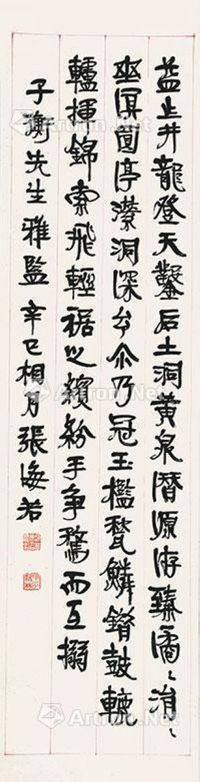 益乍井龍登天鑿后土洞黃泉潛源洊臻潏〻涓〻
冥囧停瀠洞深玄尒乃冠玉檻甃鱗錯鼓轆
轤揮錦索飛輕裾之繽紛手爭騖而互搦
子衡先生雅監 辛巳相月張海若